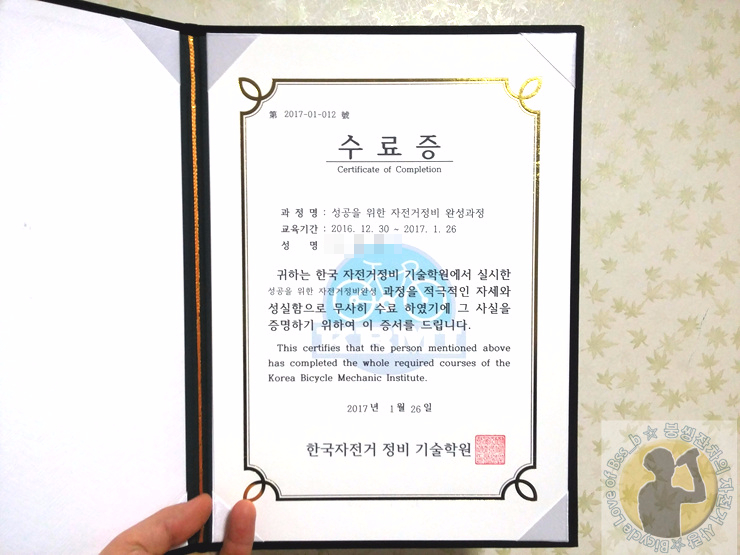 第 2017-01-012 號
수 료 증
Certificate of Completion
과 정 명 : 성공을 위한 자전거정비 완성과정
교육기간 : 2016. 12. 30 ~ 2017. 1. 26
성 명
귀하는 한국 자전거정비 기술학원에서 실시한
성공을 위한 자전거정비완성 과정을 적극적인 자세와
성실함으로 무사히 수료 하였기에 그 사실을
증명하기 위하여 이 증서를 드립니다.
KBMI
This certifies that the person mentioned above
has completed the whole required courses of the
Korea Bicycle Mechanic Institute.
2017년 1월 26일
한국자전거 정비 기술학원
Bicycle Love of Bss_b ☆ 붕씽잔차의 자전거 사랑 ☆